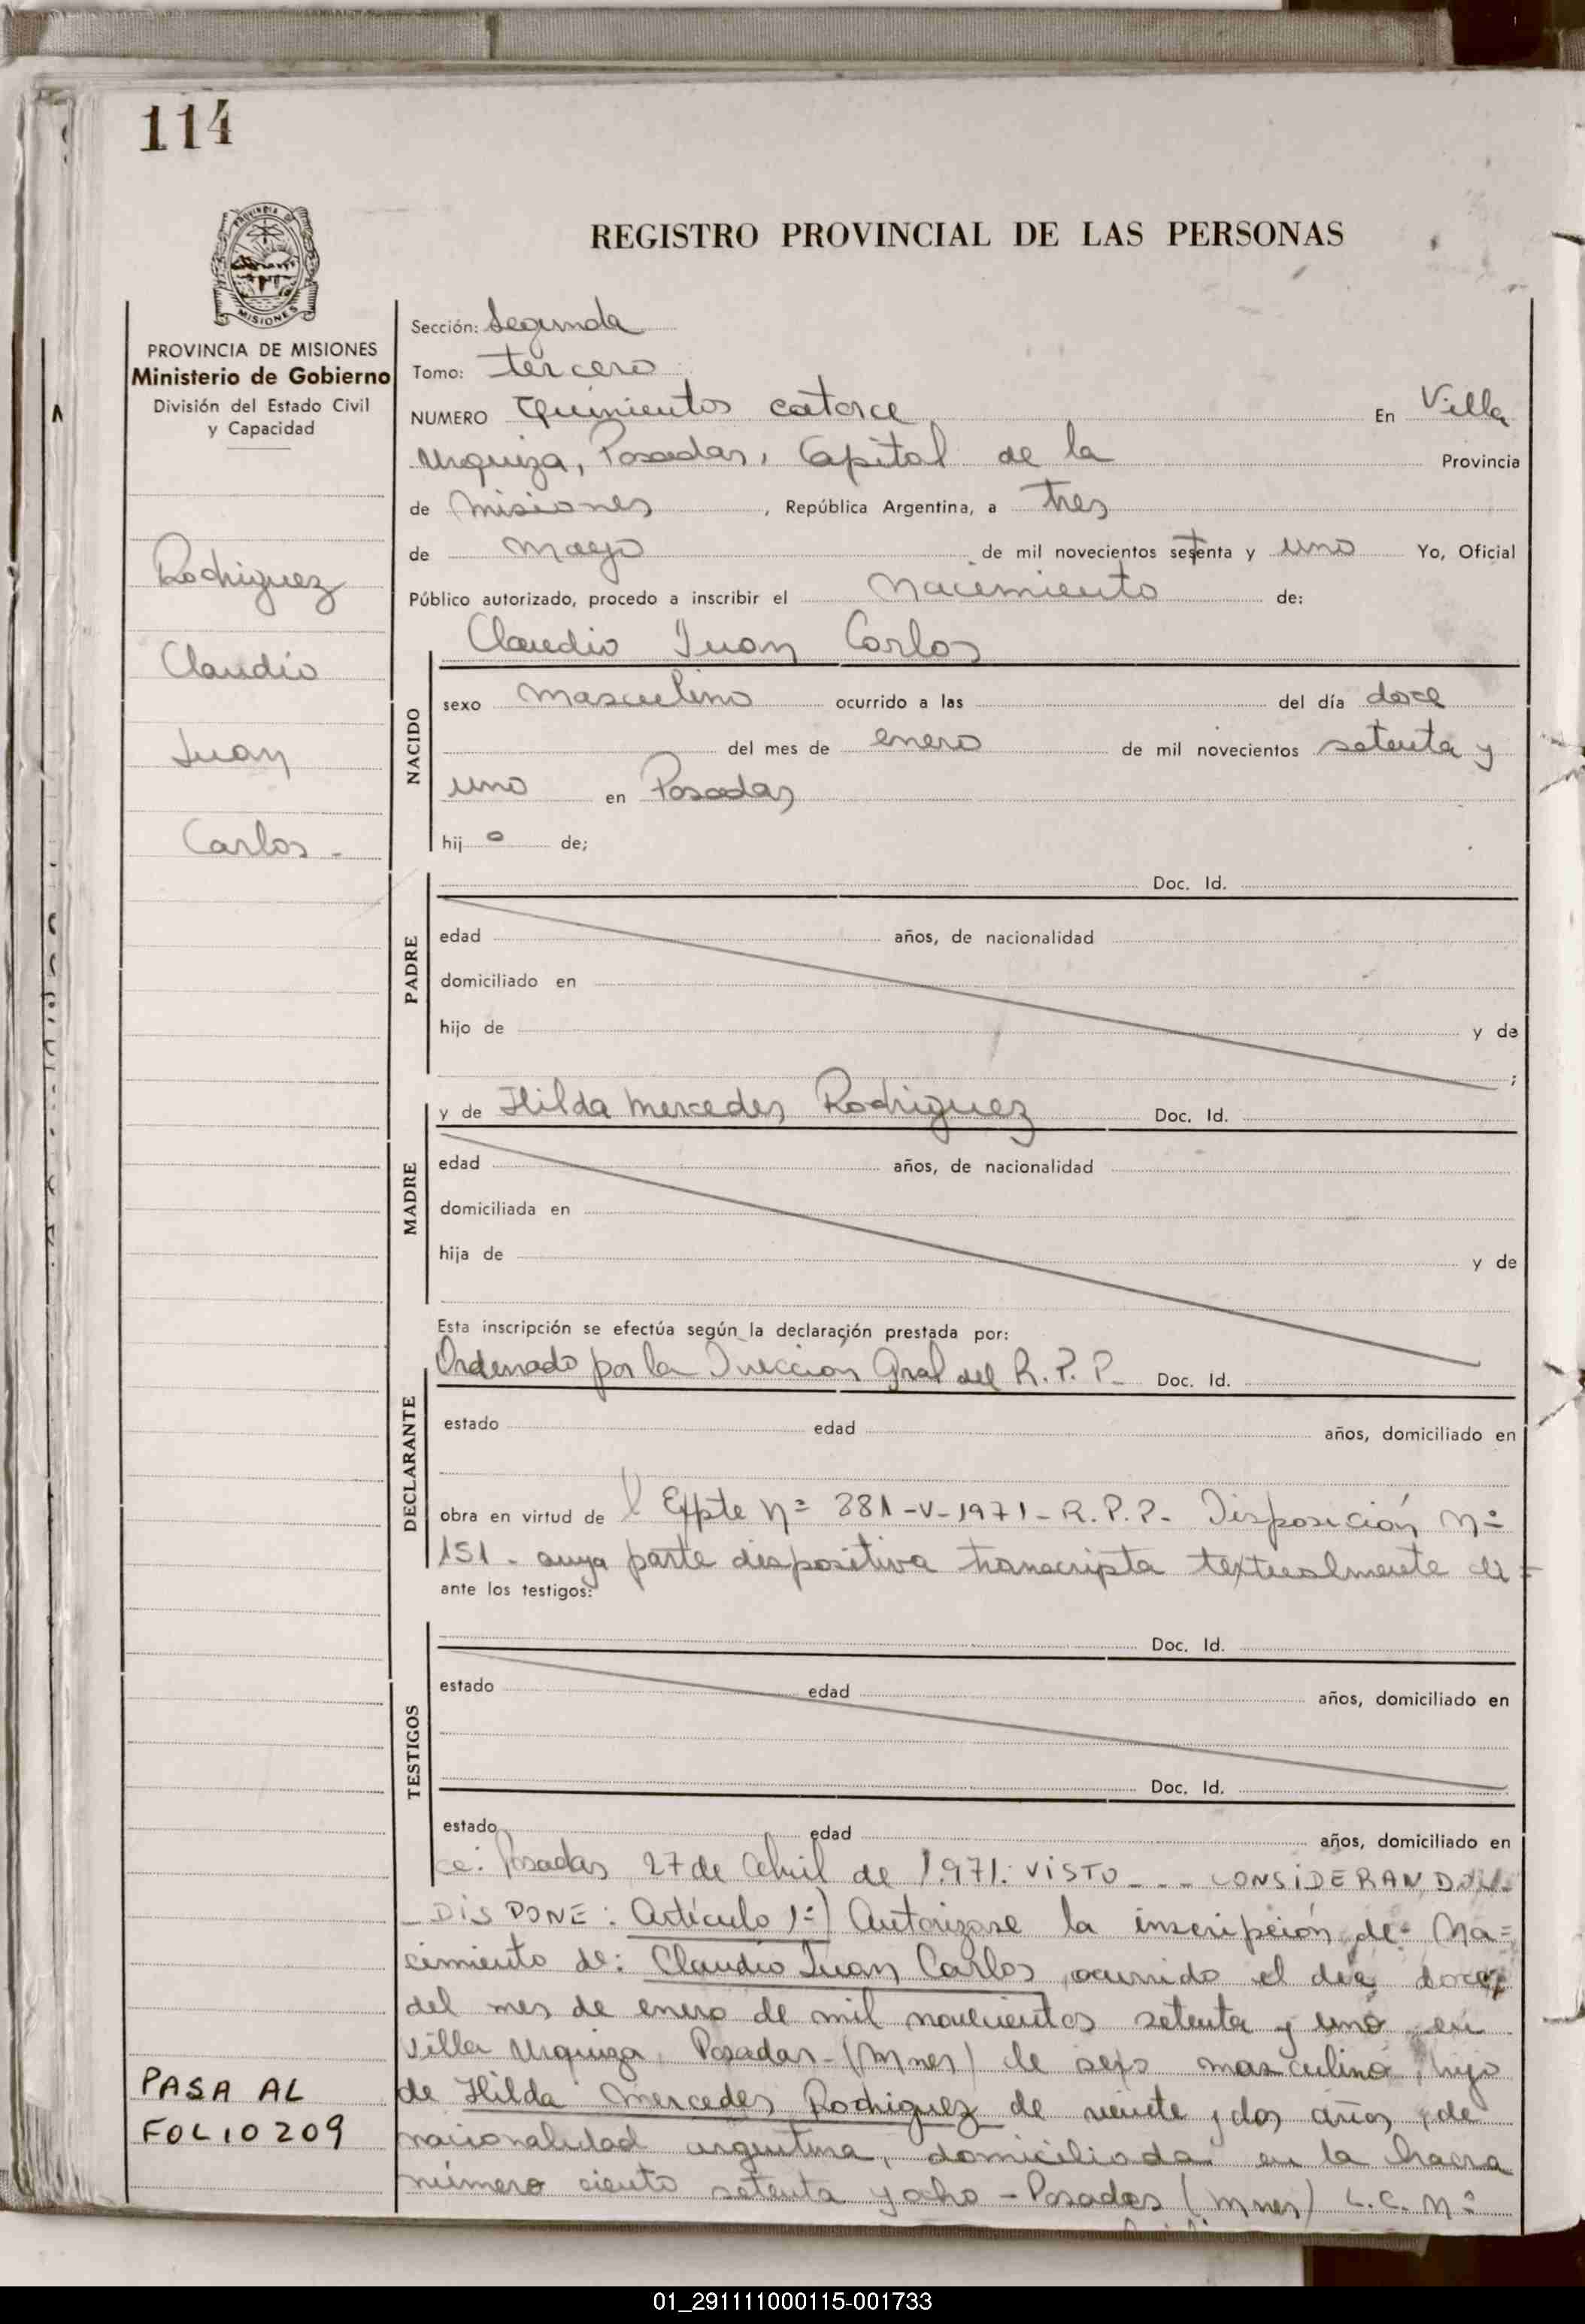 114
PROVINCIA DE
MISIONES
REGISTRO PROVINCIAL DE LAS PERSONAS
PROVINCIA DE MISIONES
Ministerio de Gobierno
División del Estado Civil
y Capacidad
Rodriguez
Claudio
Juan
Carlos -
PASA AL
FOLIO 209
Sección: Segunda
Tomo: tercero
NUMERO Quinientos catorce En Villa
Urquiza, Posadas, Capital de la Provincia
de Misiones, República Argentina, a tres
de mayo de mil novecientos setenta y uno Yo, Oficial
Público autorizado, procedo a inscribir el Nacimiento de:
Claudio Juan Carlos
NACIDO
sexo masculino ocurrido a las del día doce
del mes de enero de mil novecientos setenta y
uno en Posadas
hijo de;
PADRE
Doc. Id.
edad años, de nacionalidad
domiciliado en
hijo de y de
;
MADRE
y de Hilda Mercedes Rodriguez Doc. Id.
edad años, de nacionalidad
domiciliada en
hija de y de
Esta inscripción se efectúa según la declaración prestada por:
DECLARANTE
Ordenado por la Dirección Gral del R.P.P. Doc. Id.
estado edad años, domiciliado en
obra en virtud del Expte Nº 381-V-1971-R.P.P.- Disposición Nº
151- cuya parte dispositiva transcripta textualmente di=
ante los testigos:
TESTIGOS
Doc. Id.
estado edad años, domiciliado en
Doc. Id.
estado edad años, domiciliado en
ce: Posadas 27 de Abril de 1.971. VISTO - - - CONSIDERANDO
- DISPONE: Artículo 1º) Autorizase la inscripción de Na=
cimiento de: Claudio Juan Carlos, ocurrido el día doce
del mes de enero de mil novecientos setenta y uno en
Villa Urquiza, Posadas-(Mnes) de sexo masculino, hijo
de Hilda Mercedes Rodriguez de veinte y dos años, de
nacionalidad argentina, domiciliada en la chacra
número ciento setenta y ocho - Posadas (Mnes) L.C. Nº
01_291111000115-001733